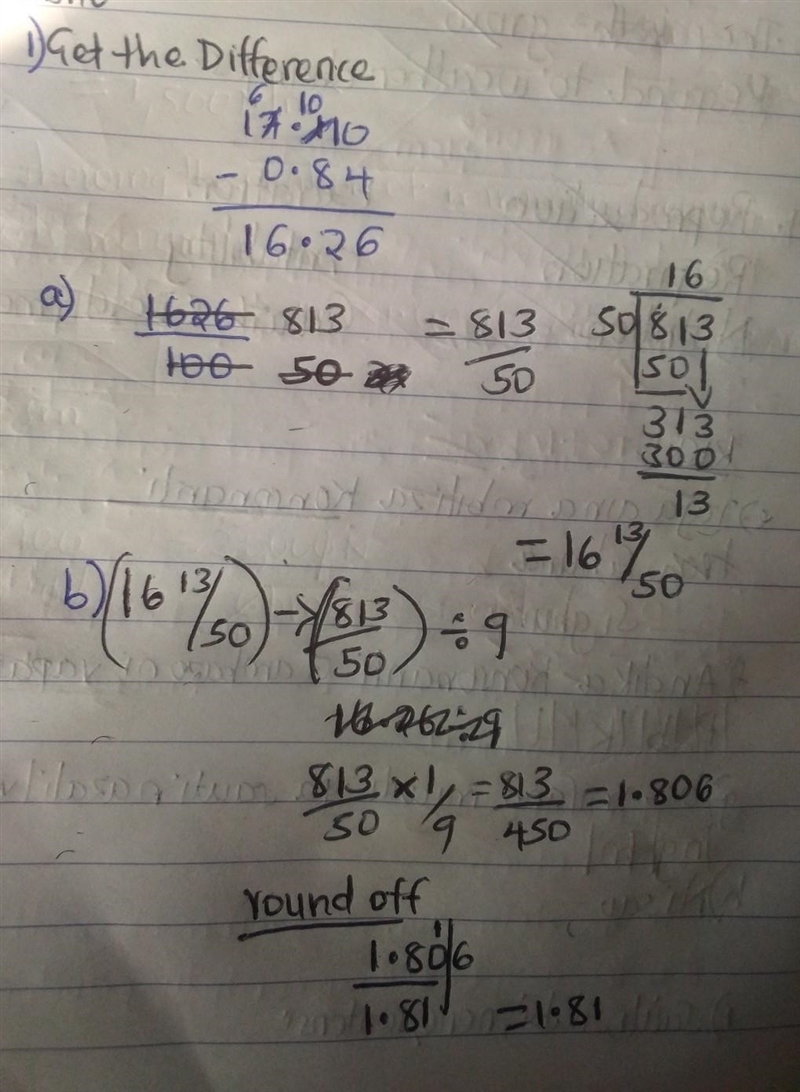 1) Get the Difference
6 10
17.10
- 0.84
16.26
a) 1626/100 813/50 = 813/50
16
50 813
50
313
300
13
= 16 13/50
b) (16 13/50) → (813/50) ÷ 9
813/50 × 1/9 = 813/450 = 1.806
round off
1
1.806
1.81 = 1.81